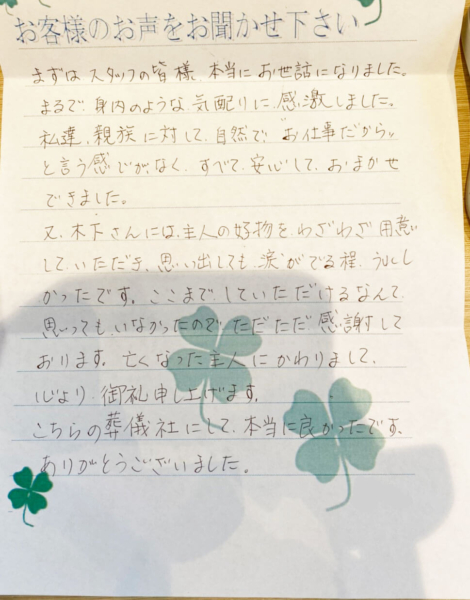 お客様のお声をお聞かせ下さい
まずは スタッフの皆様、本当に お世話になりました。
まるで 身内のような 気配りに、感激しました。
私達、親族に対して、自然で "お仕事だから"
と言う感じがなく、すべて、安心して、おまかせ
できました。
又、木下さんには、主人の好物を、わざわざ 用意
して いただき、思い出しても 涙がでる程、うれし
かったです。ここまで していただけるなんて
思っても いなかったので ただただ 感謝して
おります。亡くなった主人に かわりまして、
心より 御礼申し上げます。
こちらの葬儀社にして、本当に良かったです。
ありがとうございました。